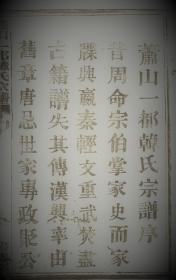 蕭山一都韓氏宗譜序
昔周命宗伯掌家史而家
牒興嬴秦輕文重武焚盡
亡籍譜失其傳漢興率由
舊章唐忌世家專政貶公